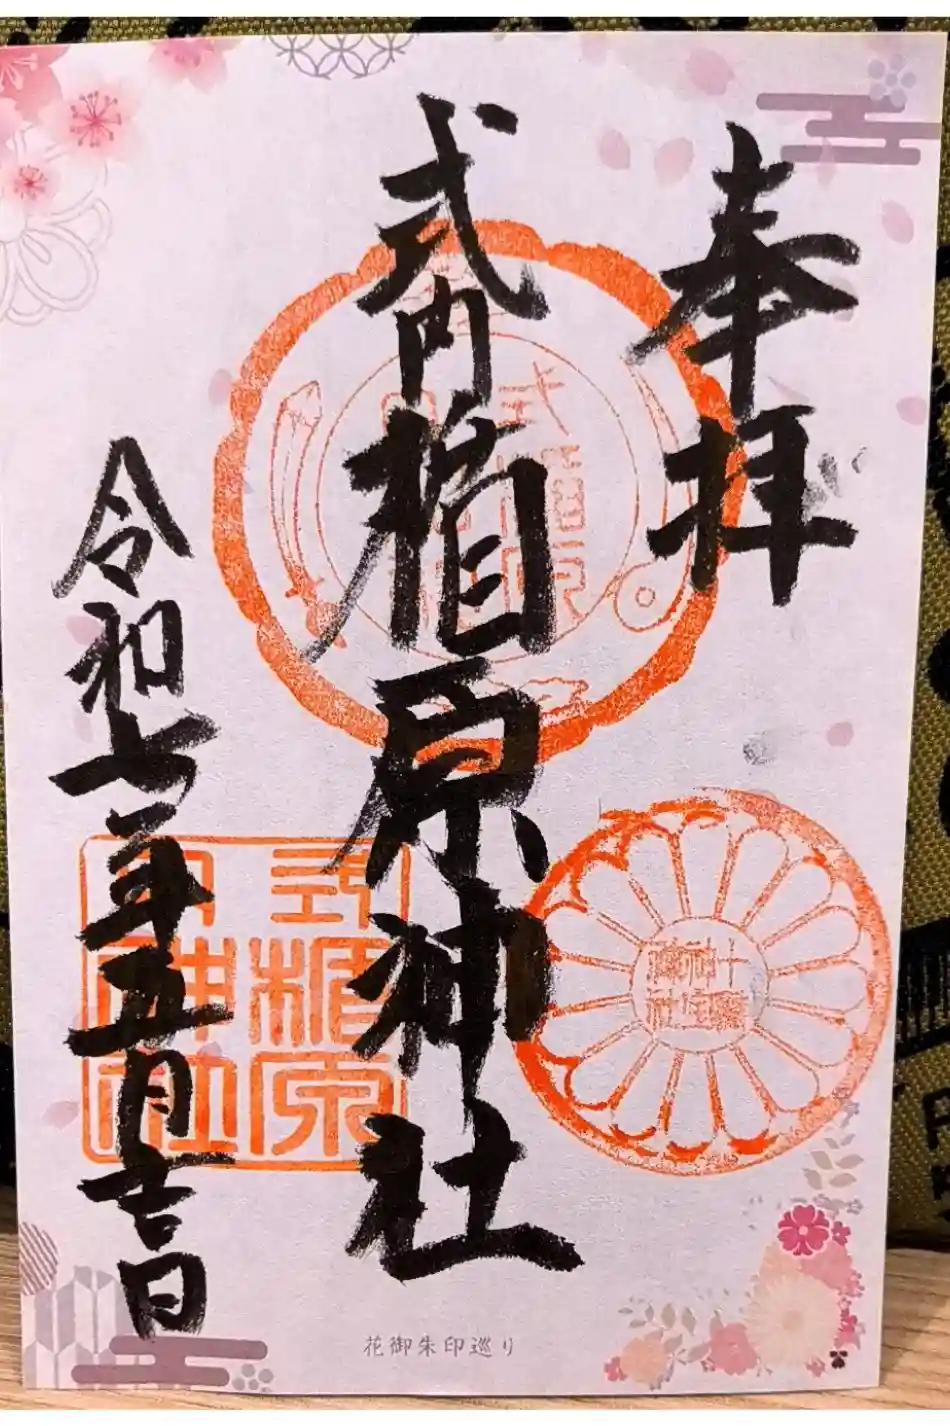 奉拝
式内楯原神社
令和七年五月吉日
式楯原
内神社
花御朱印巡り